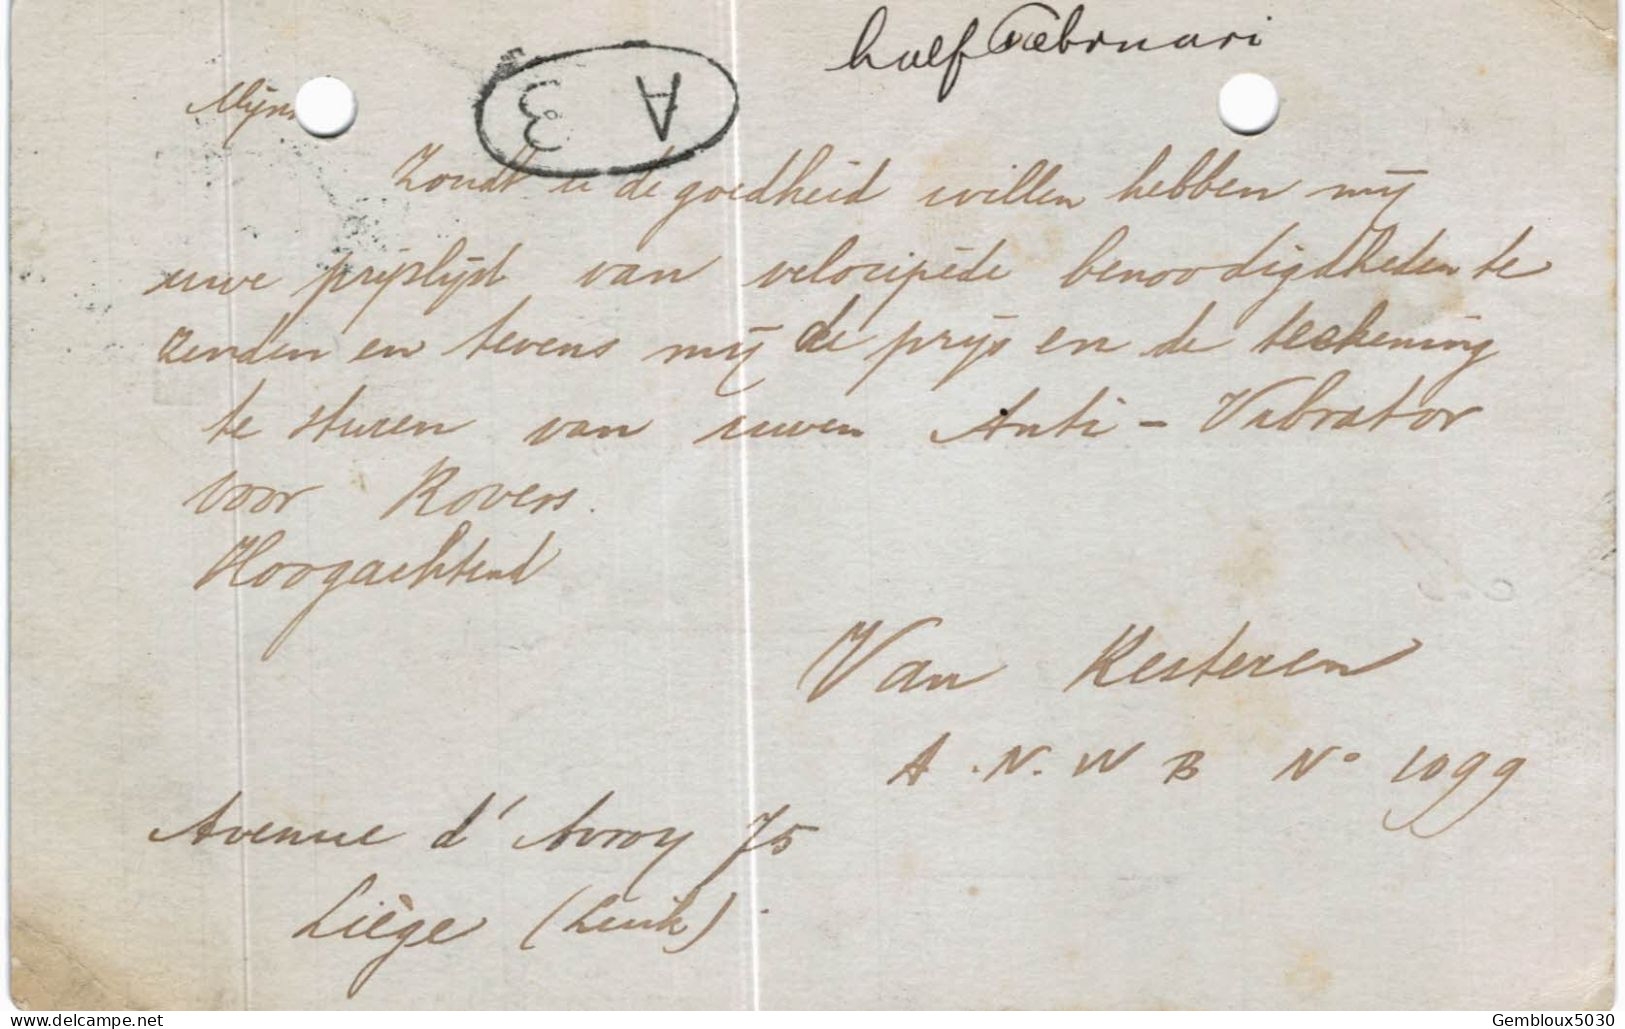 half Februari
A 3
Mijn
Zoudt u de goedheid willen hebben mij
uwe prijslijst van velocipède benoodigdheden te
zenden en tevens mij de prijs en de teekening
te sturen van uwen Anti-Vibrator
voor Rovers.
Hoogachtend
Van Kesteren
A.N.W B No 1099
Avenue d'Avroy 75
Liège (Luik).
delcampe.net
Gembloux5030